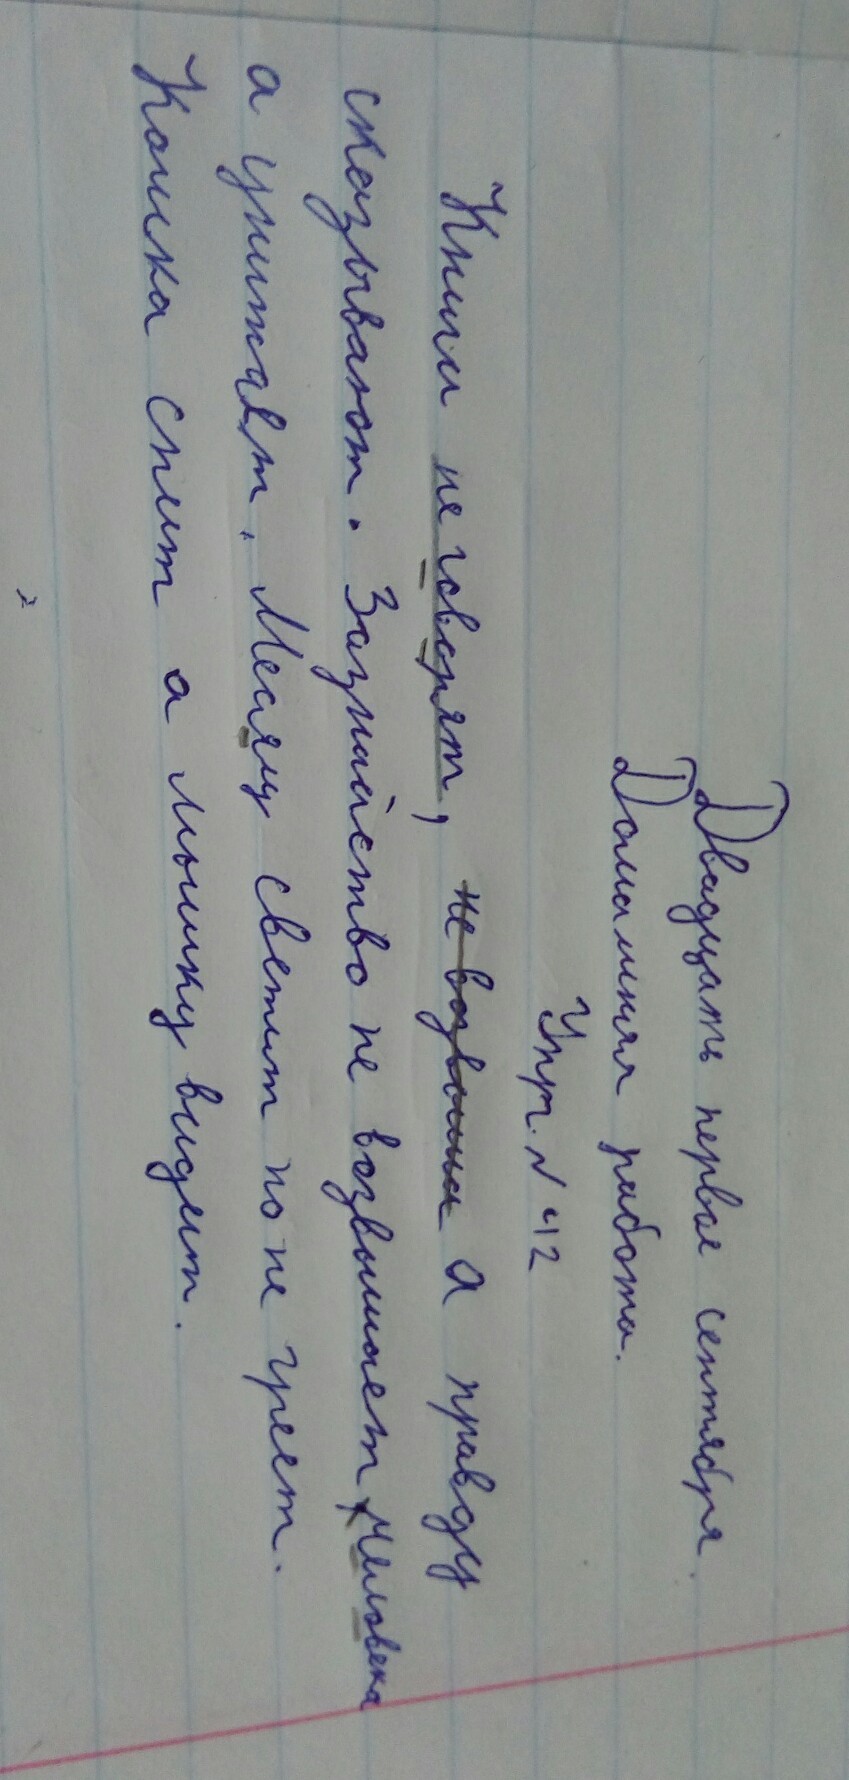 Двадцать первое сентября.
Домашняя работа.
Упр. N 42
Книги не говорят, а правду
сказывают. Зазнайство не возвышает человека
а унижает. Месяц светит но не греет.
Кошка спит а мышку видит.